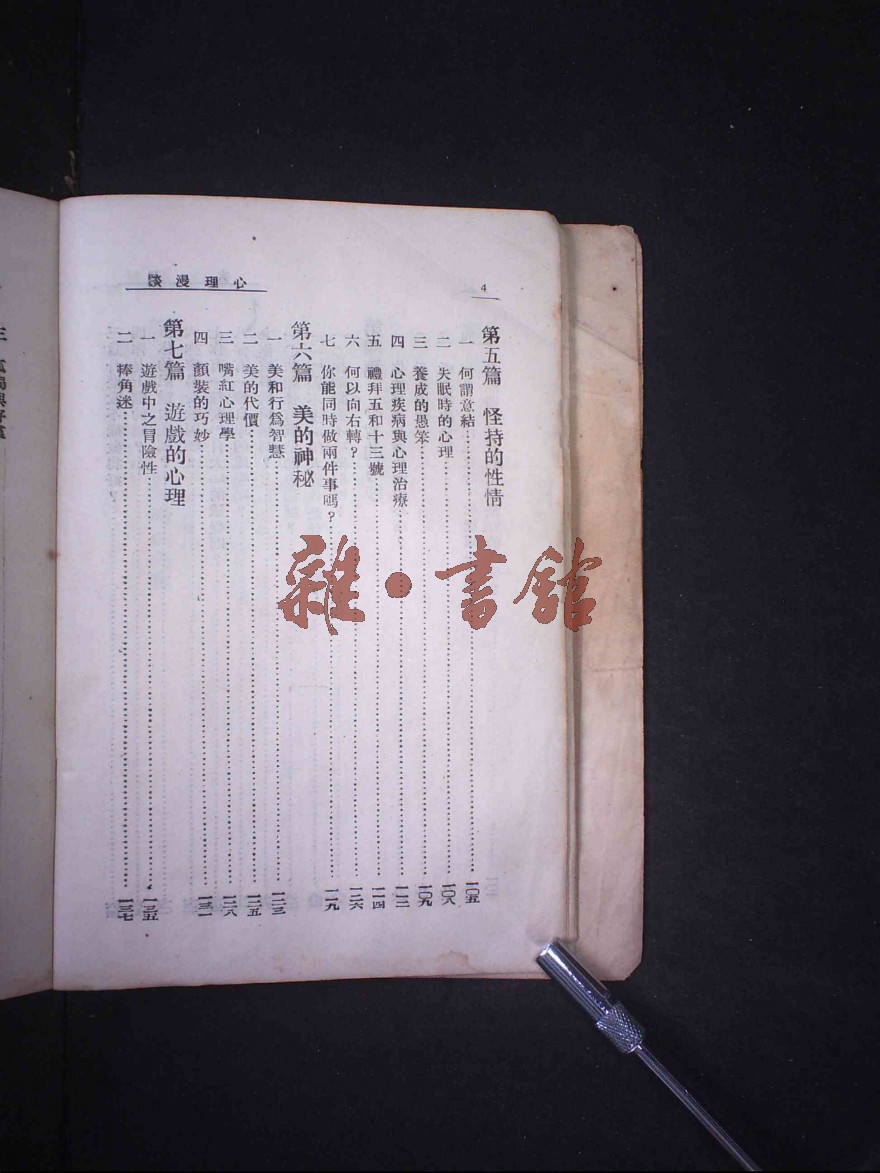 心理漫談
4
第五篇 怪持的性情
一 何謂意結……一〇五
二 失眠時的心理……一〇八
三 養成的愚笨……一〇九
四 心理疾病與心理治療……一一二
五 禮拜五和十三號……一一四
六 何以向右轉？……一二六
七 你能同時做兩件事嗎？……一一九
第六篇 美的神秘
一 美和行爲智慧……一二三
二 美的代價……一二五
三 嘴紅心理學……一二八
四 顏裝的巧妙……一三一
第七篇 遊戲的心理
一 遊戲中之冒險性……一三五
二 捧角迷……一三七
雜·書館